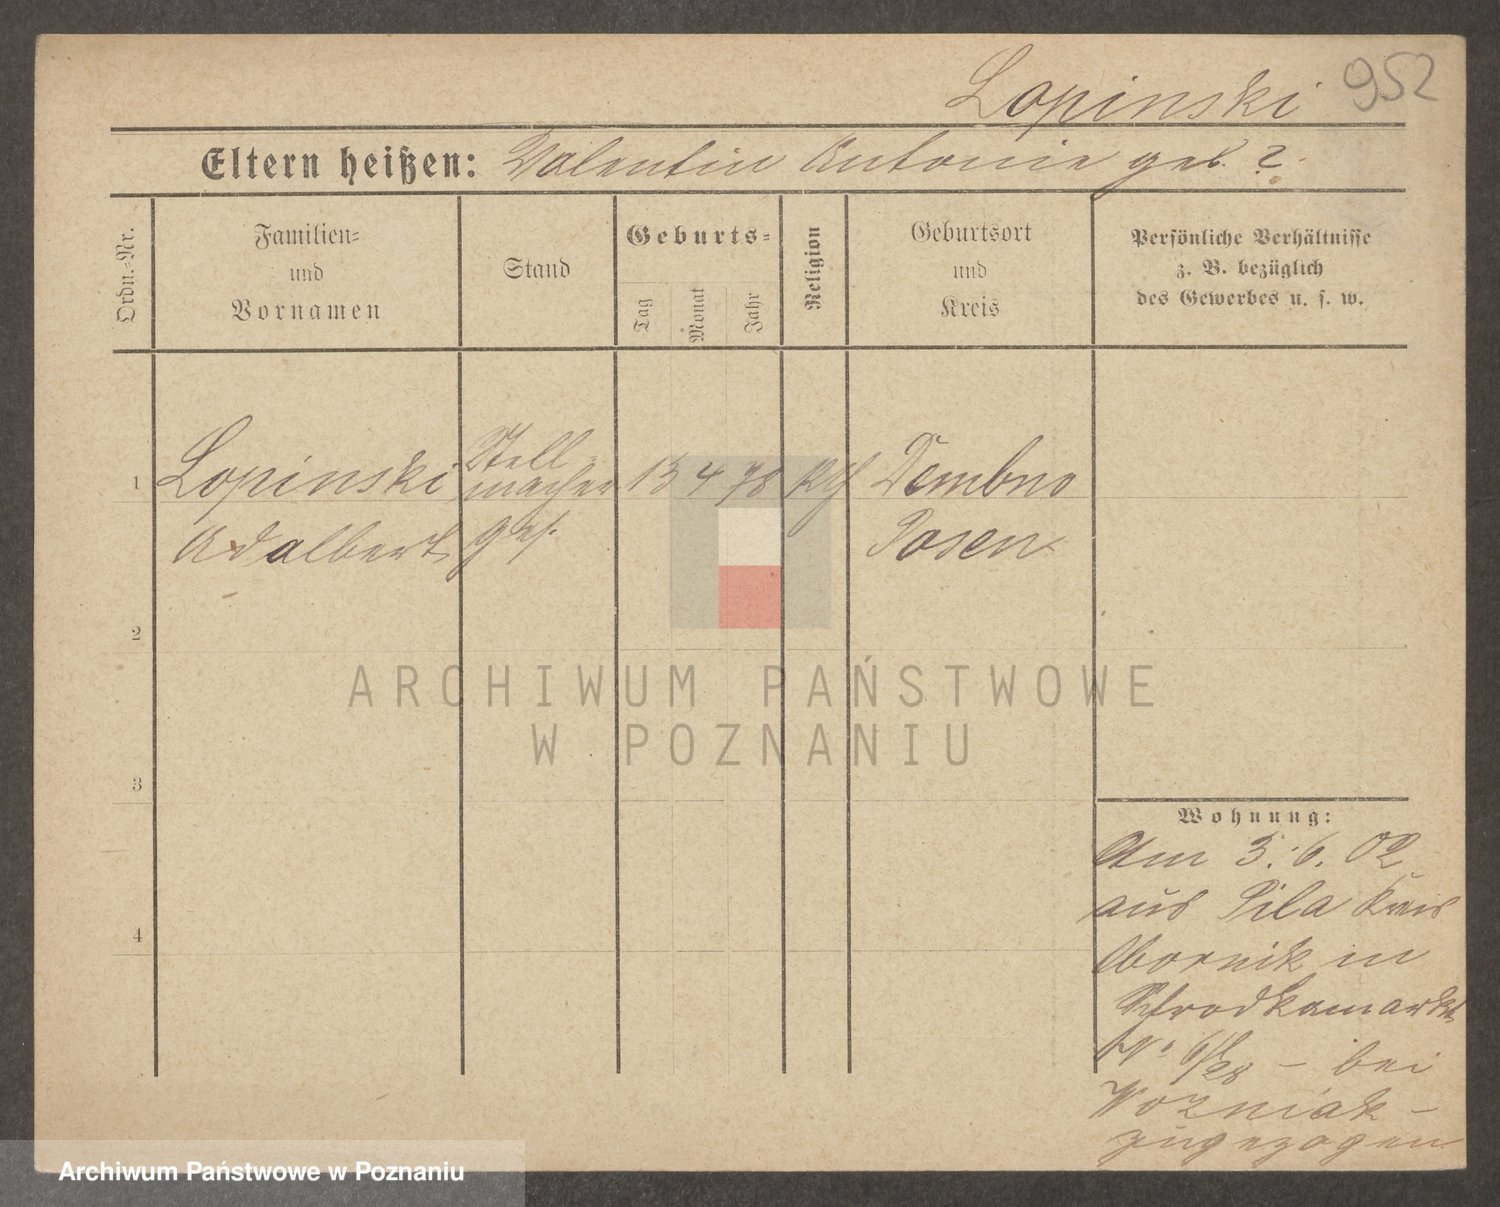 Lopinski 952
Eltern heißen: Valentin Antonie geb. ?
Ordn.-Nr.
Familien-
und
Vornamen
Stand
Geburts-
Tag
Monat
Jahr
Religion
Geburtsort
und
Kreis
Persönliche Verhältnisse
z. B. bezüglich
des Gewerbes u. s. w.
1 Lopinski Stell- 13 4 78 Kth Dembno
macher
Adalbert ges. Posen
2
3
4
Wohnung:
Am 3.6.02
aus Pila Kreis
Obornik in
Schrodkamarkt
bei
Wozniak -
zugezogen
ARCHIWUM PAŃSTWOWE
W POZNANIU
Archiwum Państwowe w Poznaniu